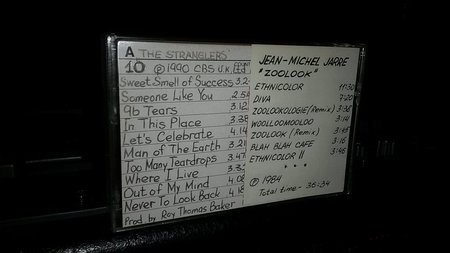 A THE STRANGLERS
10 ℗ 1990 CBS U.K.
Sweet Smell of Success
Someone Like You
96 Tears 3.12
In This Place 3.38
Let's Celebrate 4.14
Man of The Earth 3.21
Too Many Teardrops 3.47
Where I Live
Out of My Mind 4.08
Never To Look Back 4.18
Prod by Roy Thomas Baker
JEAN-MICHEL JARRE
"ZOOLOOK"
ETHNICOLOR
DIVA
ZOOLOOKOLOGIE (Remix)
WOOLLOOMOOLOO 3:14
ZOOLOOK (Remix)
BLAH BLAH CAFE 3:16
ETHNICOLOR II
* * * *
℗ 1984
Total time - 36:34